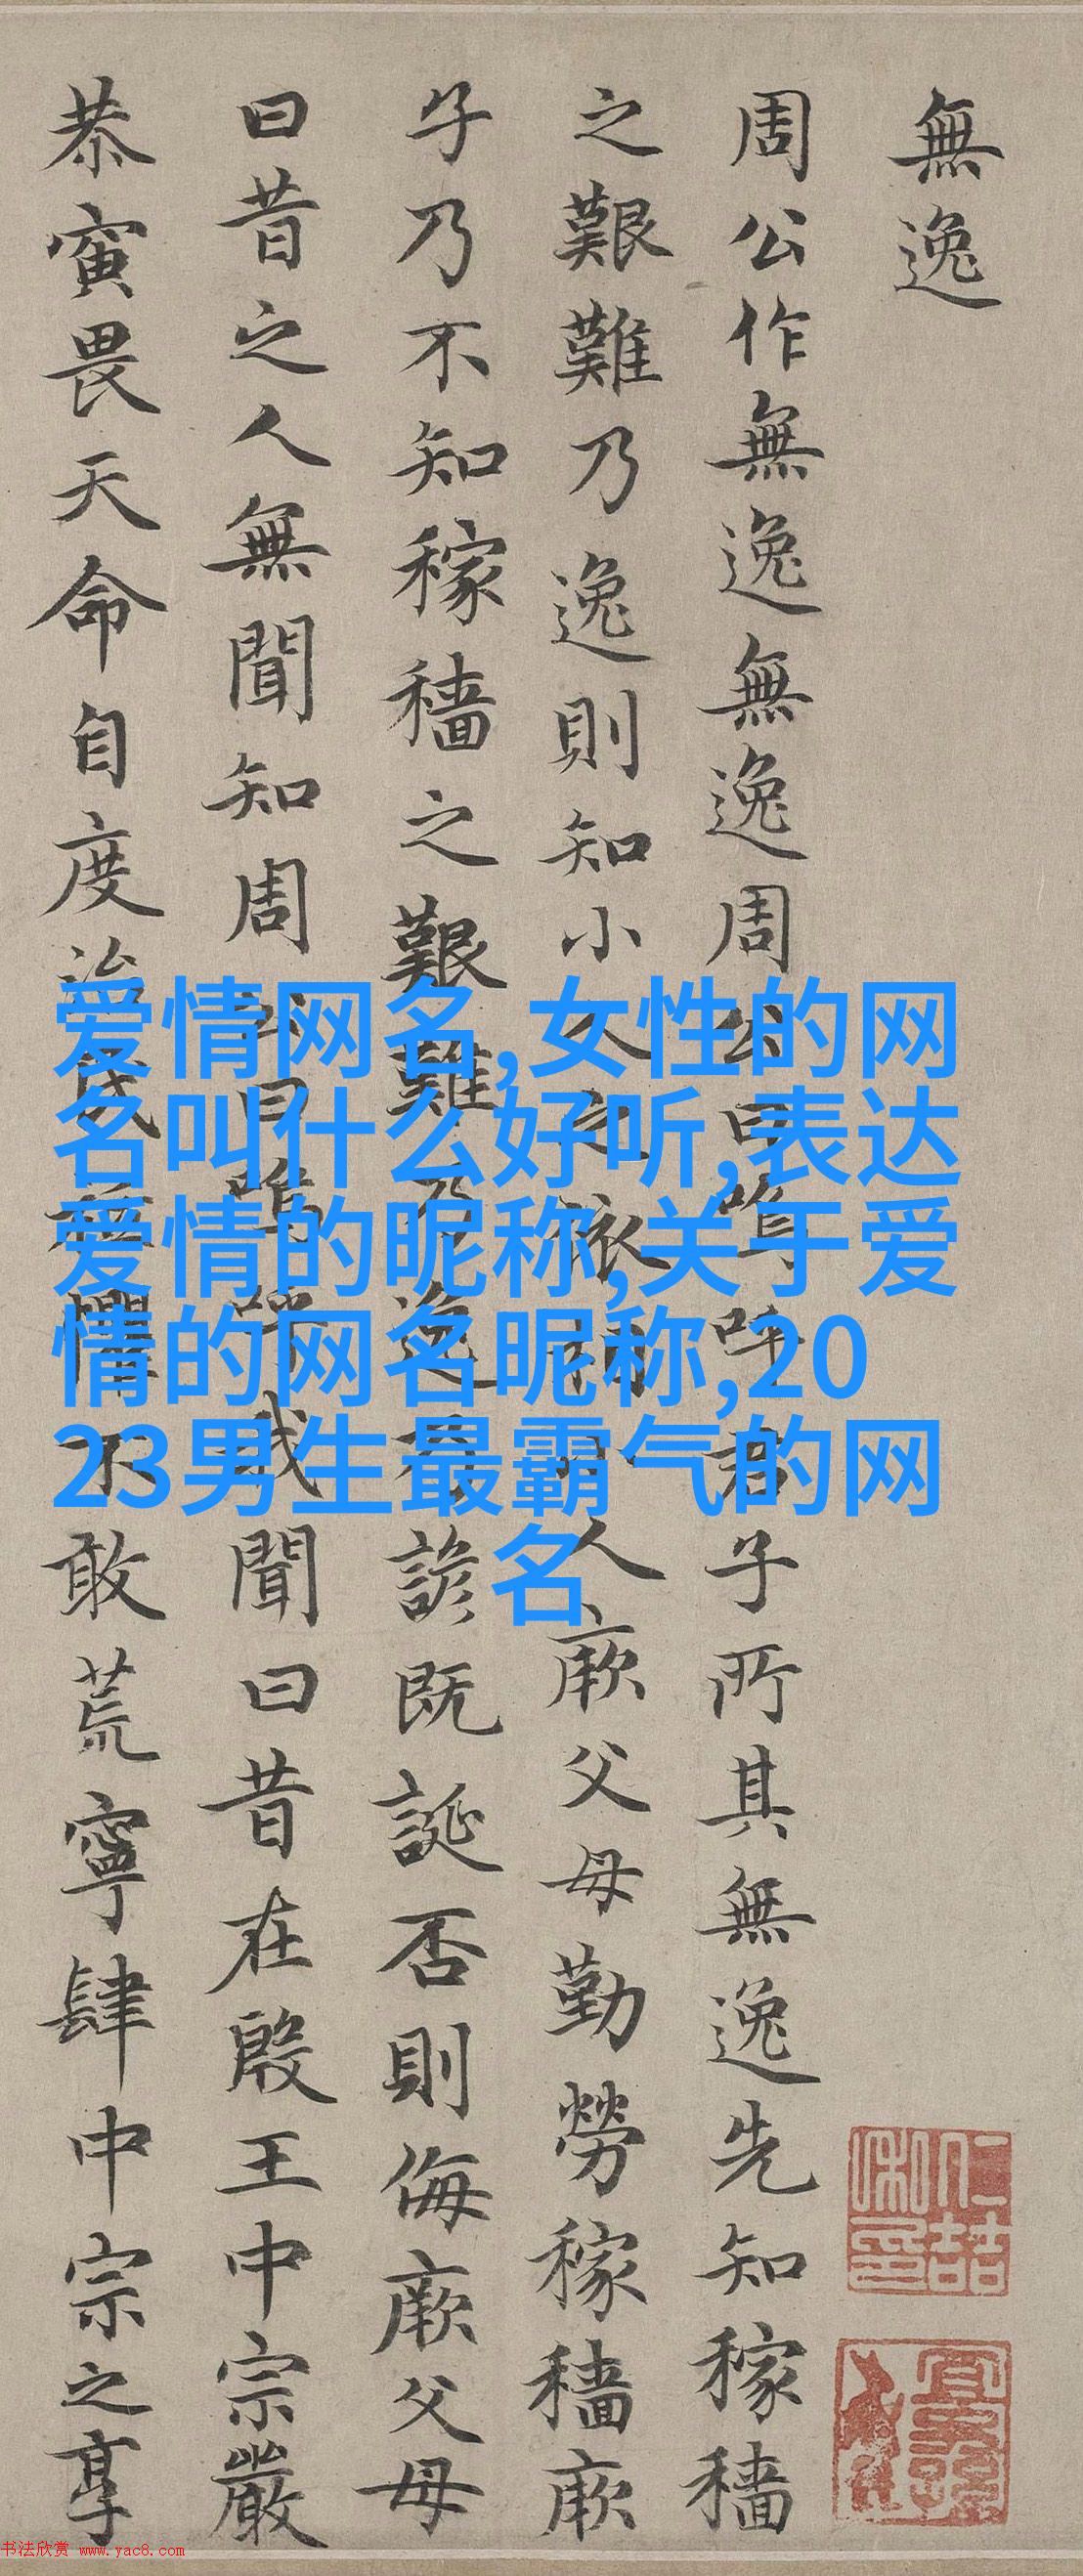 無逸
周公作無逸無逸周公曰嗚呼君子所其無逸先知稼穡
之艱難乃逸則知小人之依相小人厥父母勤勞稼穡厥
子乃不知稼穡之艱難乃逸乃諺既誕否則侮厥父母
曰昔之人無聞知周公曰嗚呼我聞曰昔在殷王中宗嚴
恭寅畏天命自度治民祗懼不敢荒寧肆中宗之享
爱情网名,女性的网
名叫什么好听,表达
爱情的昵称,关于爱
情的网名昵称,20
23男生最霸气的网
名
书法欣赏 www.yac8.com